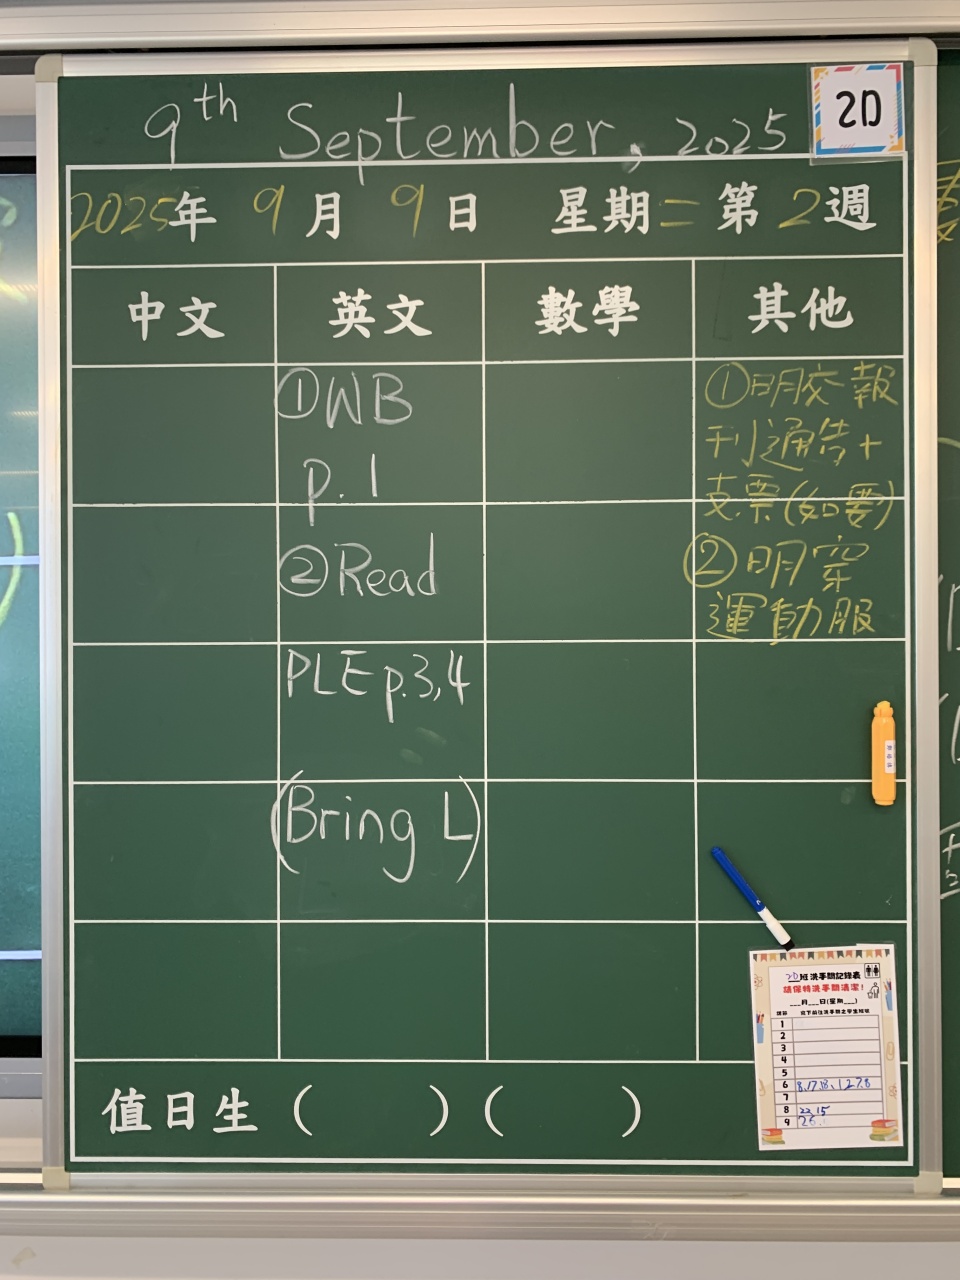 9th September, 2025
2D
2025年 9月 9日 星期二 第2週
中文 英文 數學 其他
①WB
p.1
②Read
PLE p.3,4
(Bring L)
①明交報
刊通告+
支票(如要)
②明穿
運動服
值日生( )( )
2D班洗手間記錄表
請保持洗手間清潔!
___月___日(星期___)
1
2
3
4
5
6
7
8 22, 15
9